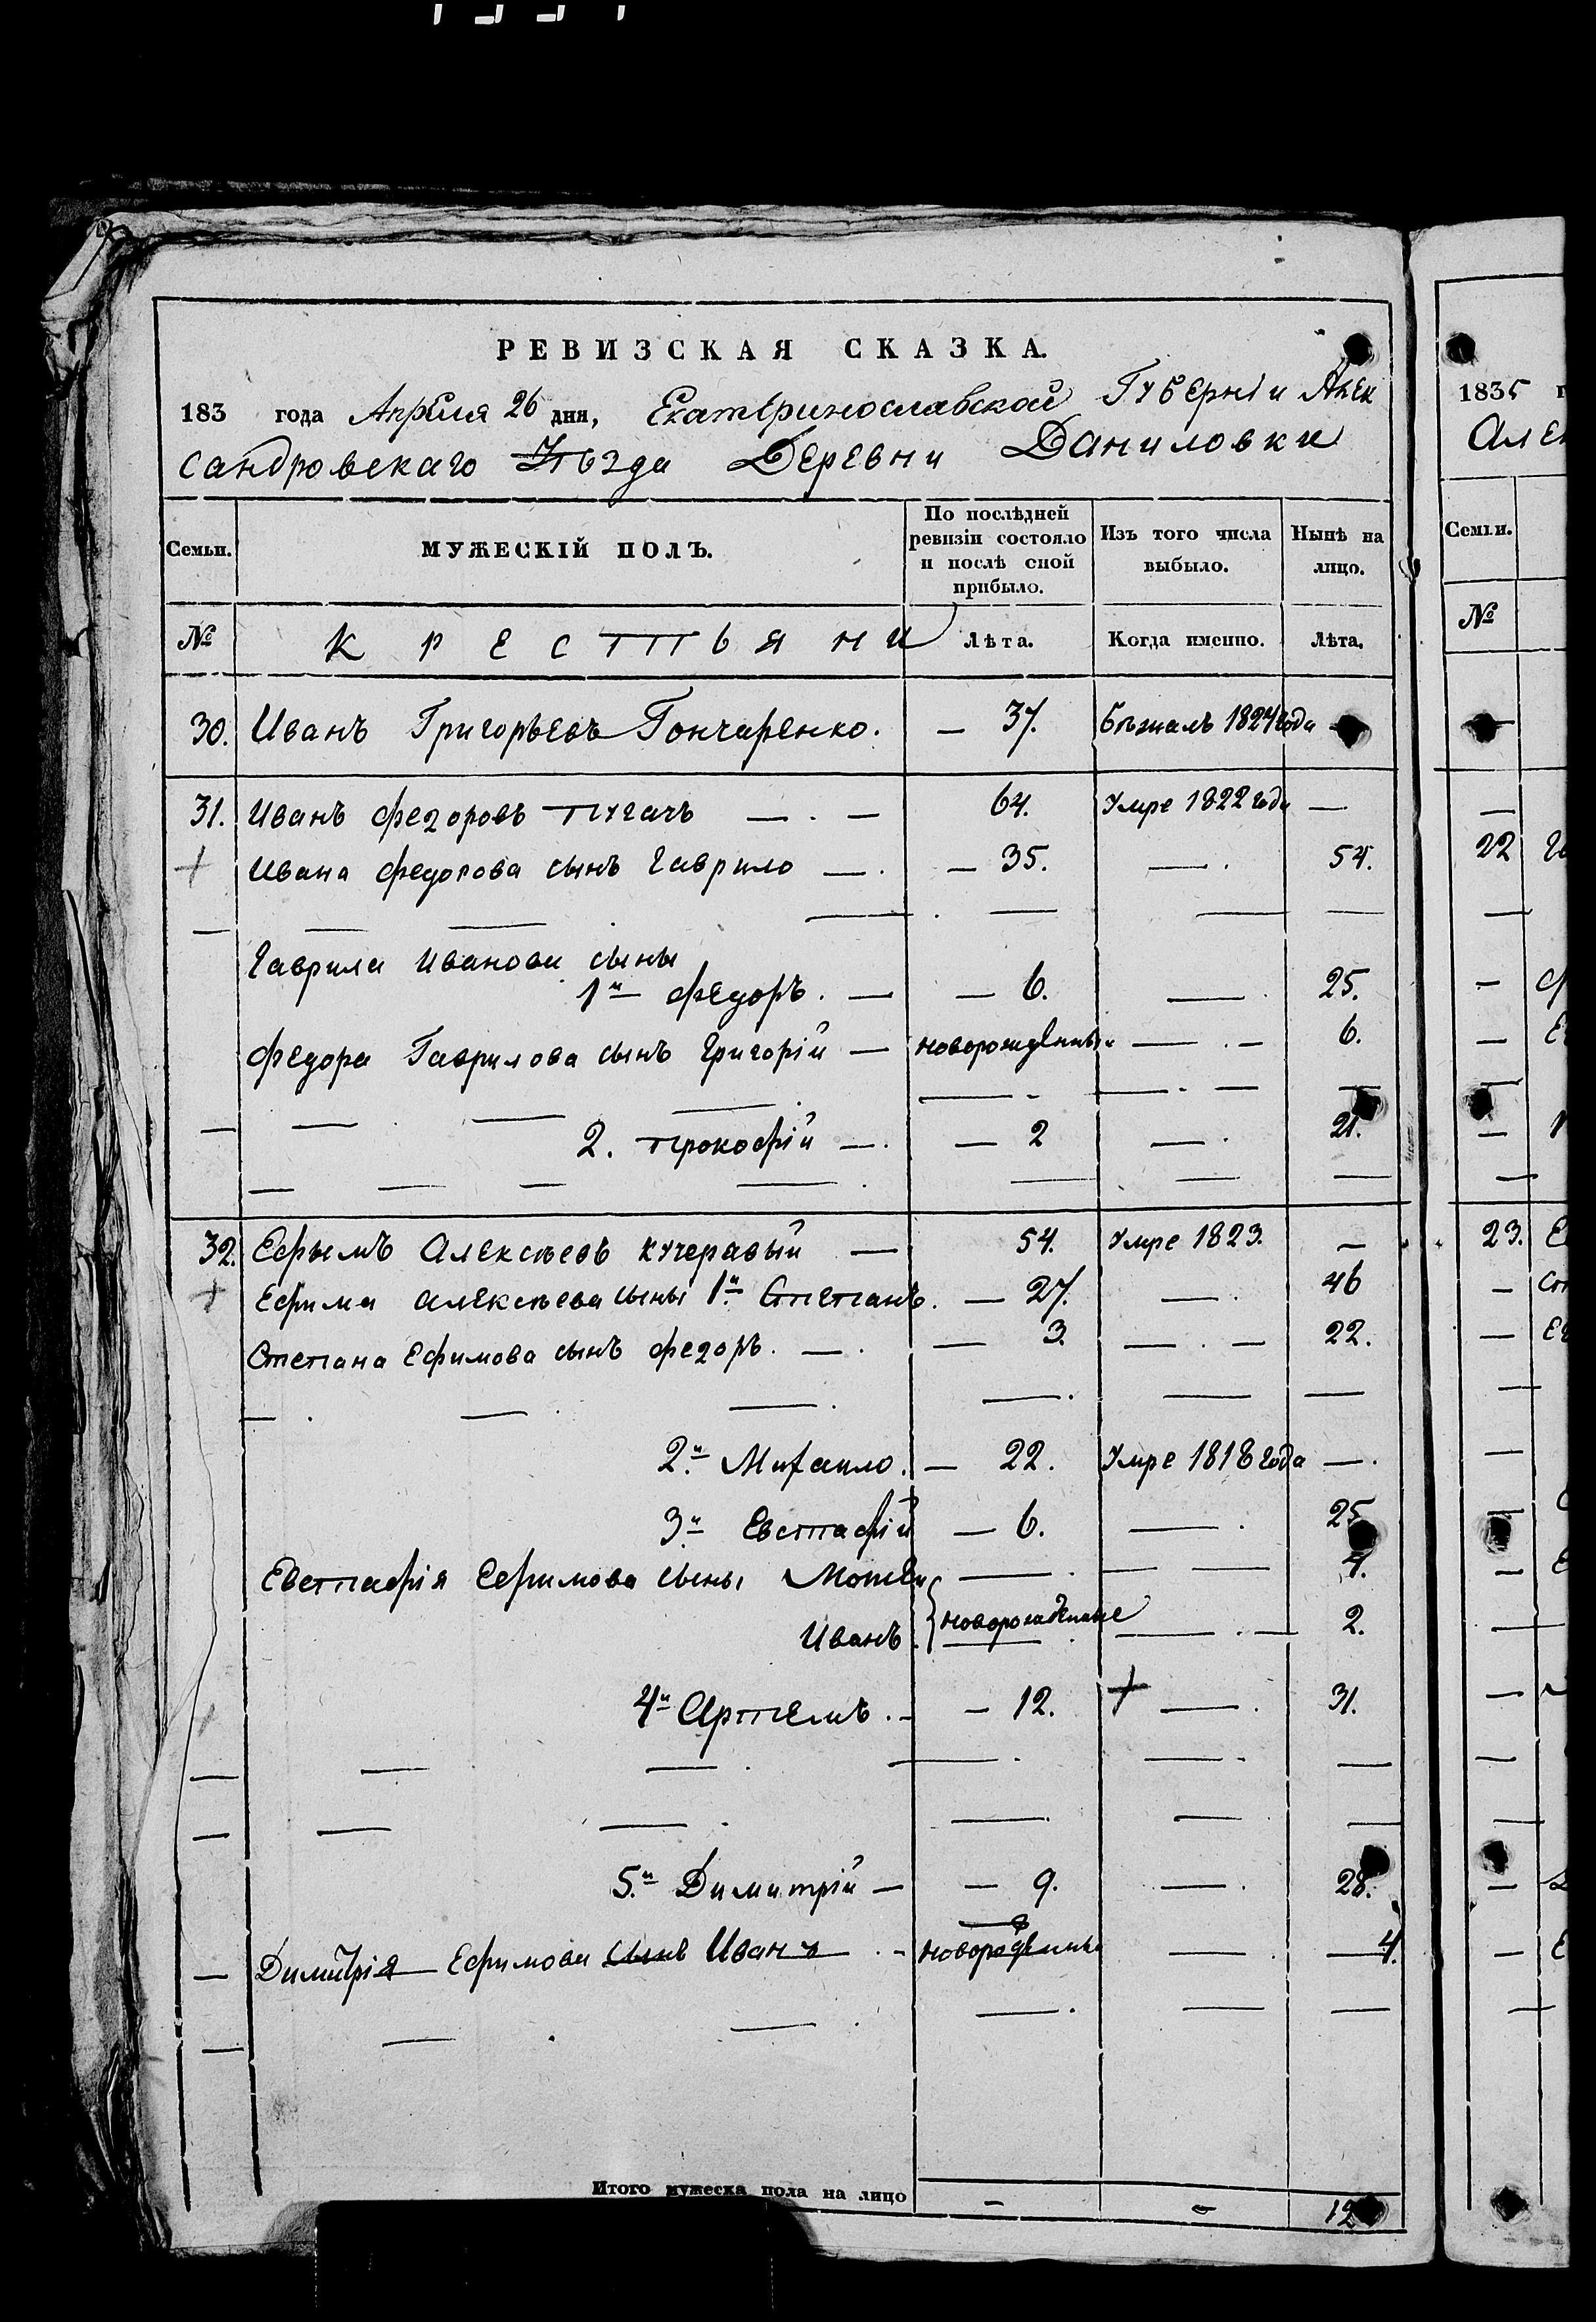 РЕВИЗСКАЯ СКАЗКА.
183 года Апреля 26 дня, Екатеринославской Губерніи Алек
сандровскаго Уѣзда Деревни Даниловки
Семьи. МУЖЕСКІЙ ПОЛЪ. По послѣдней ревизіи состояло и послѣ оной прибыло. Изъ того числа выбыло. Нынѣ на лицо.
№ Крестьяни Лѣта. Когда именно. Лѣта.
30. Иванъ Григорьевъ Гончаренко. — 37. Бѣжалъ 1824 года —
31. Иванъ Федоровъ Пугачъ — . — 64. Умре 1822 года —
+ Ивана Федорова сынъ Гаврило — . — 35. — . 54.
Гаврила Иванова сыны
1й Федоръ. — — 6. — . 25.
Федора Гаврилова сынъ Григорій — новорожденный — . — 6.
2. Прокофій — . — 2 — . 21.
32. Ефымъ Алексѣевъ Кучеравый — 54. Умре 1823. —
+ Ефима Алексѣева сыны 1й Степанъ. — 27. — . 46
Степана Ефимова сынъ Федоръ. — . — 3. — . — 22.
2й Михаило. — 22. Умре 1818 года — .
3й Евстафій — 6. — . 25
Евстафія Ефимова сыны Мотей — . — — 4.
Иванъ новорожденные — . — 2.
4й Артемъ. — — 12. + — . 31.
5й Димитрій — — 9. — . 28.
— Димитрія Ефимова сынъ Иванъ . — новорожденный — . — 4.
Итого мужеска пола на лицо — — 12
1835 г
Алек
Семьи.
№
22
23.